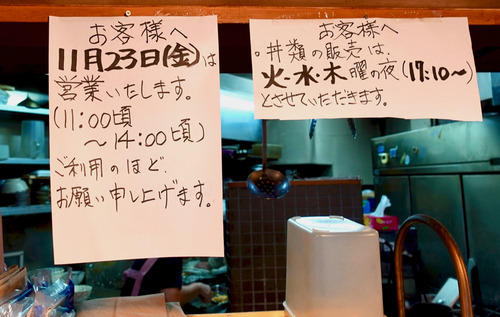 お客様へ
11月23日(金)は
営業いたします。
(11:00頃
〜14:00頃)
ご利用のほど、
お願い申し上げます。
お客様へ
・丼類の販売は、
火・水・木曜の夜(17:10〜)
とさせていただきます。